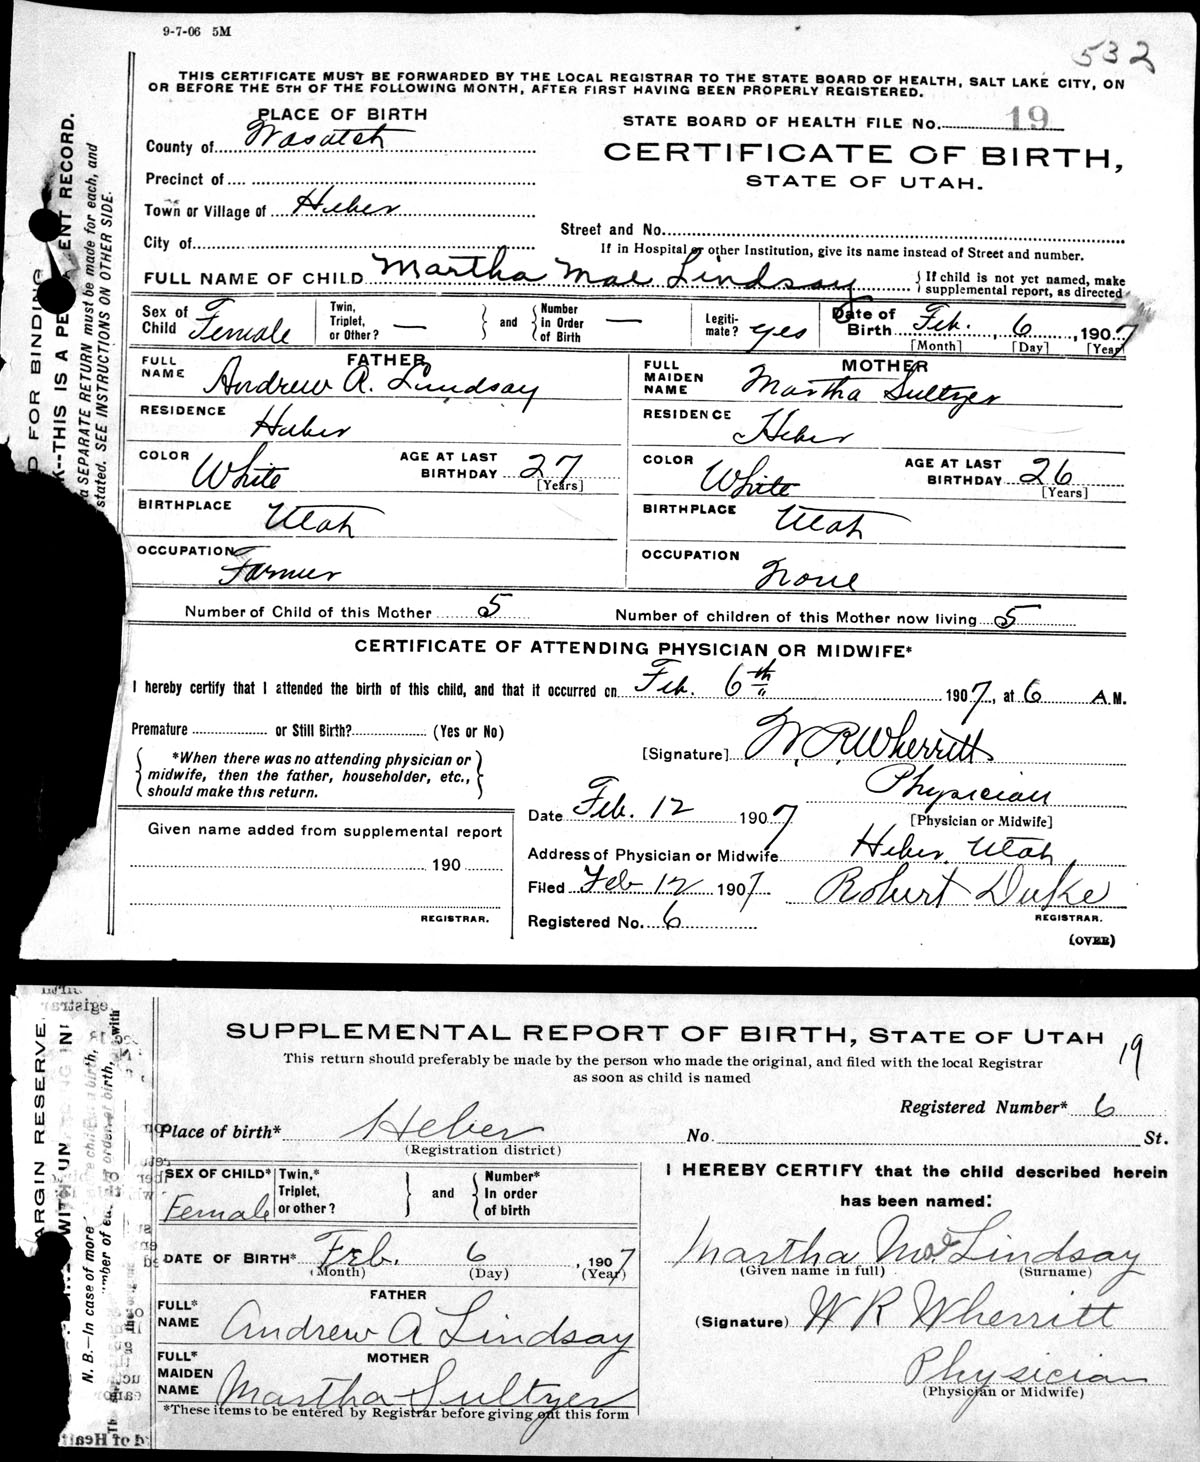 9-7-06 5M
532
THIS CERTIFICATE MUST BE FORWARDED BY THE LOCAL REGISTRAR TO THE STATE BOARD OF HEALTH, SALT LAKE CITY, ON
OR BEFORE THE 5TH OF THE FOLLOWING MONTH, AFTER FIRST HAVING BEEN PROPERLY REGISTERED.
PLACE OF BIRTH
County of Wasatch
Precinct of
Town or Village of Heber
City of
STATE BOARD OF HEALTH FILE No. 19
CERTIFICATE OF BIRTH,
STATE OF UTAH.
Street and No.
If in Hospital or other Institution, give its name instead of Street and number.
FULL NAME OF CHILD Martha Mae Lindsay { If child is not yet named, make
supplemental report, as directed
Sex of Child Female
Twin, Triplet, or Other? —
and
Number in Order of Birth —
Legiti-mate? yes
Date of Birth Feb. 6, 1907
[Month] [Day] [Year]
FATHER
FULL NAME Andrew A. Lindsay
RESIDENCE Heber
COLOR White AGE AT LAST BIRTHDAY 27 [Years]
BIRTHPLACE Utah
OCCUPATION Farmer
MOTHER
FULL MAIDEN NAME Martha Sultzer
RESIDENCE Heber
COLOR White AGE AT LAST BIRTHDAY 26 [Years]
BIRTHPLACE Utah
OCCUPATION None
Number of Child of this Mother 5 Number of children of this Mother now living 5
CERTIFICATE OF ATTENDING PHYSICIAN OR MIDWIFE*
I hereby certify that I attended the birth of this child, and that it occurred on Feb. 6th 1907, at 6 A.M.
Premature or Still Birth? (Yes or No)
*When there was no attending physician or
midwife, then the father, householder, etc.,
should make this return.
[Signature] W. R. Wherritt
Physician
[Physician or Midwife]
Date Feb. 12 1907
Address of Physician or Midwife Heber, Utah
Filed Feb 12 1907 Robert Duke
REGISTRAR.
Registered No. 6
(OVER)
Given name added from supplemental report
190
REGISTRAR.
FOR BINDING
THIS IS A PE ENT RECORD.
a SEPARATE RETURN must be made for each, and
stated. SEE INSTRUCTIONS ON OTHER SIDE.
SUPPLEMENTAL REPORT OF BIRTH, STATE OF UTAH
19
This return should preferably be made by the person who made the original, and filed with the local Registrar
as soon as child is named
Registered Number* 6
Place of birth* Heber No. St.
(Registration district)
SEX OF CHILD* Female
Twin,* Triplet, or other?
and
Number* In order of birth
DATE OF BIRTH* Feb. 6, 1907
(Month) (Day) (Year)
FATHER
FULL* NAME Andrew A Lindsay
MOTHER
FULL* MAIDEN NAME Martha Sultzer
*These items to be entered by Registrar before giving out this form
I HEREBY CERTIFY that the child described herein
has been named:
Martha Mae Lindsay
(Given name in full) (Surname)
(Signature) W R Wherritt
Physician
(Physician or Midwife)
ARGIN RESERVE
N. B.—In case of more